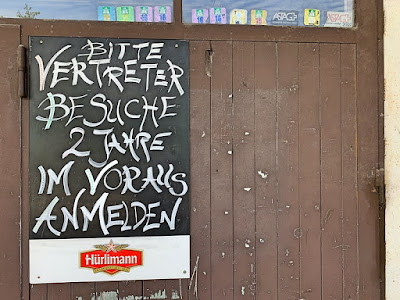 BITTE
VERTRETER
BESUCHE
2 JAHRE
IM VORAUS
ANMELDEN
Hürlimann